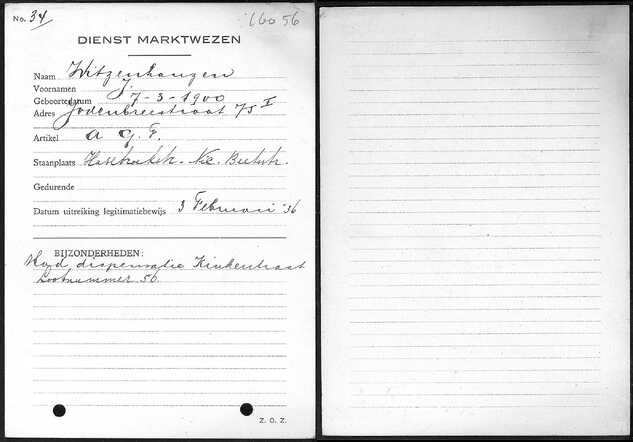 No. 34
1600 56
DIENST MARKTWEZEN
Naam Witzenhauzen
Voornamen J.
Geboortedatum 7-3-1900
Adres Jodenbreestraat 75 I
Artikel a g. F.
Staanplaats Hasebroekstr. Nic. Beetsstr.
Gedurende
Datum uitreiking legitimatiebewijs 3 Februari '36
BIJZONDERHEDEN:
dispensatie Kinkerstraat
Lootnummer 50.
Z. O. Z.